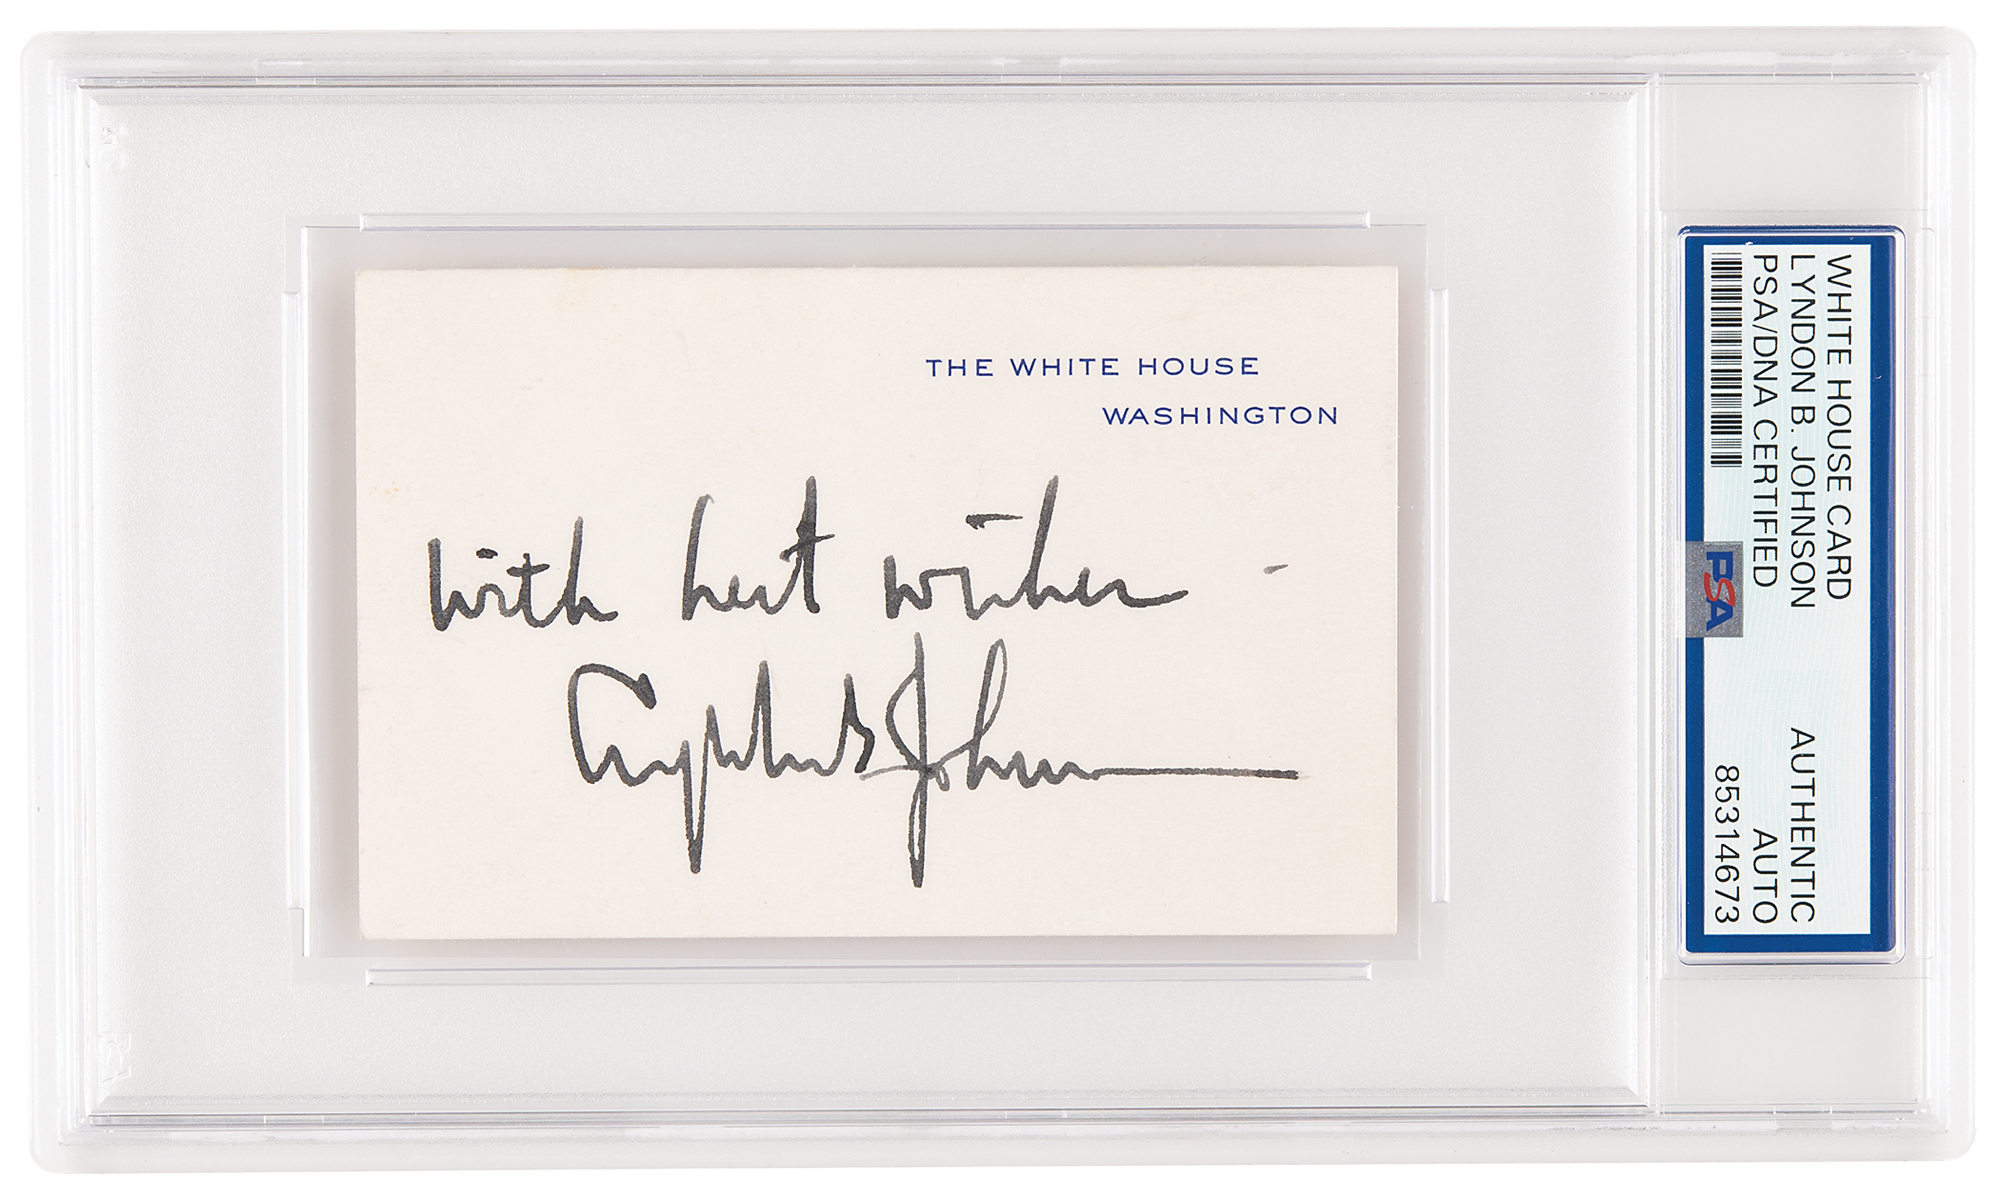 THE WHITE HOUSE
WASHINGTON
With best wishes -
Lyndon B. Johnson
WHITE HOUSE CARD
LYNDON B. JOHNSON AUTHENTIC
PSA/DNA CERTIFIED AUTO
85314673
PSA